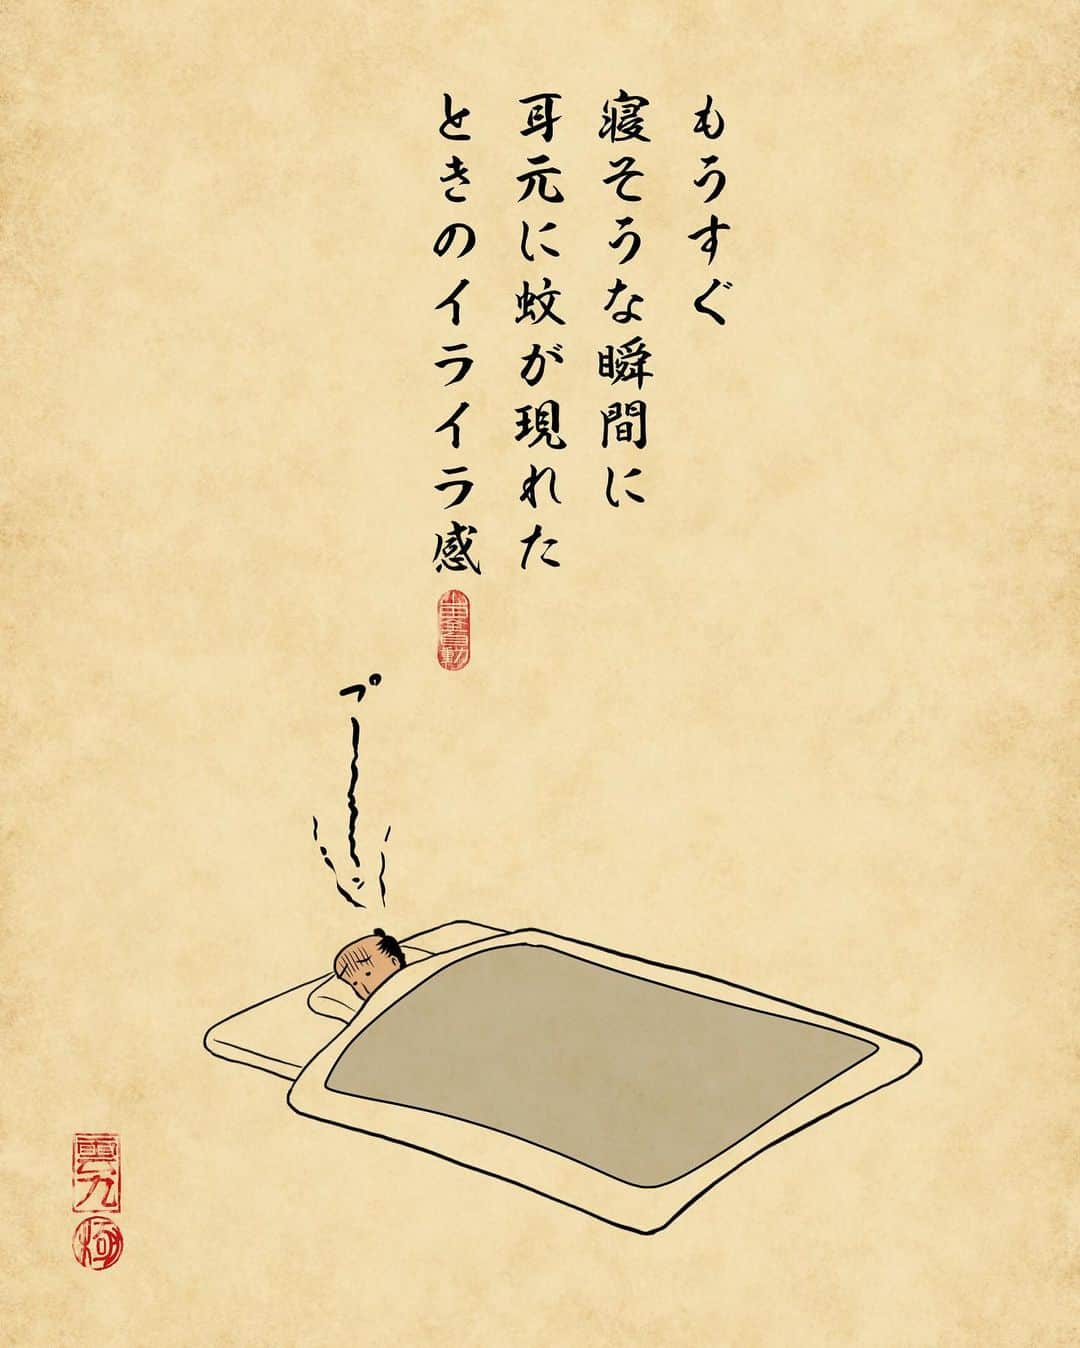 もうすぐ
寝そうな瞬間に
耳元に蚊が現れた
ときのイライラ感
プーーン
雲九
極